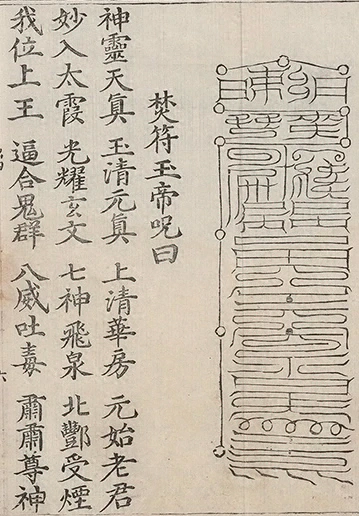 焚符玉帝呪曰
神靈天眞 玉清元眞 上清華房 元始老君
妙入太霞 光耀玄文 七神飛泉 北酆受煙
我位上王 逼合鬼群 八威吐毒 肅肅尊神